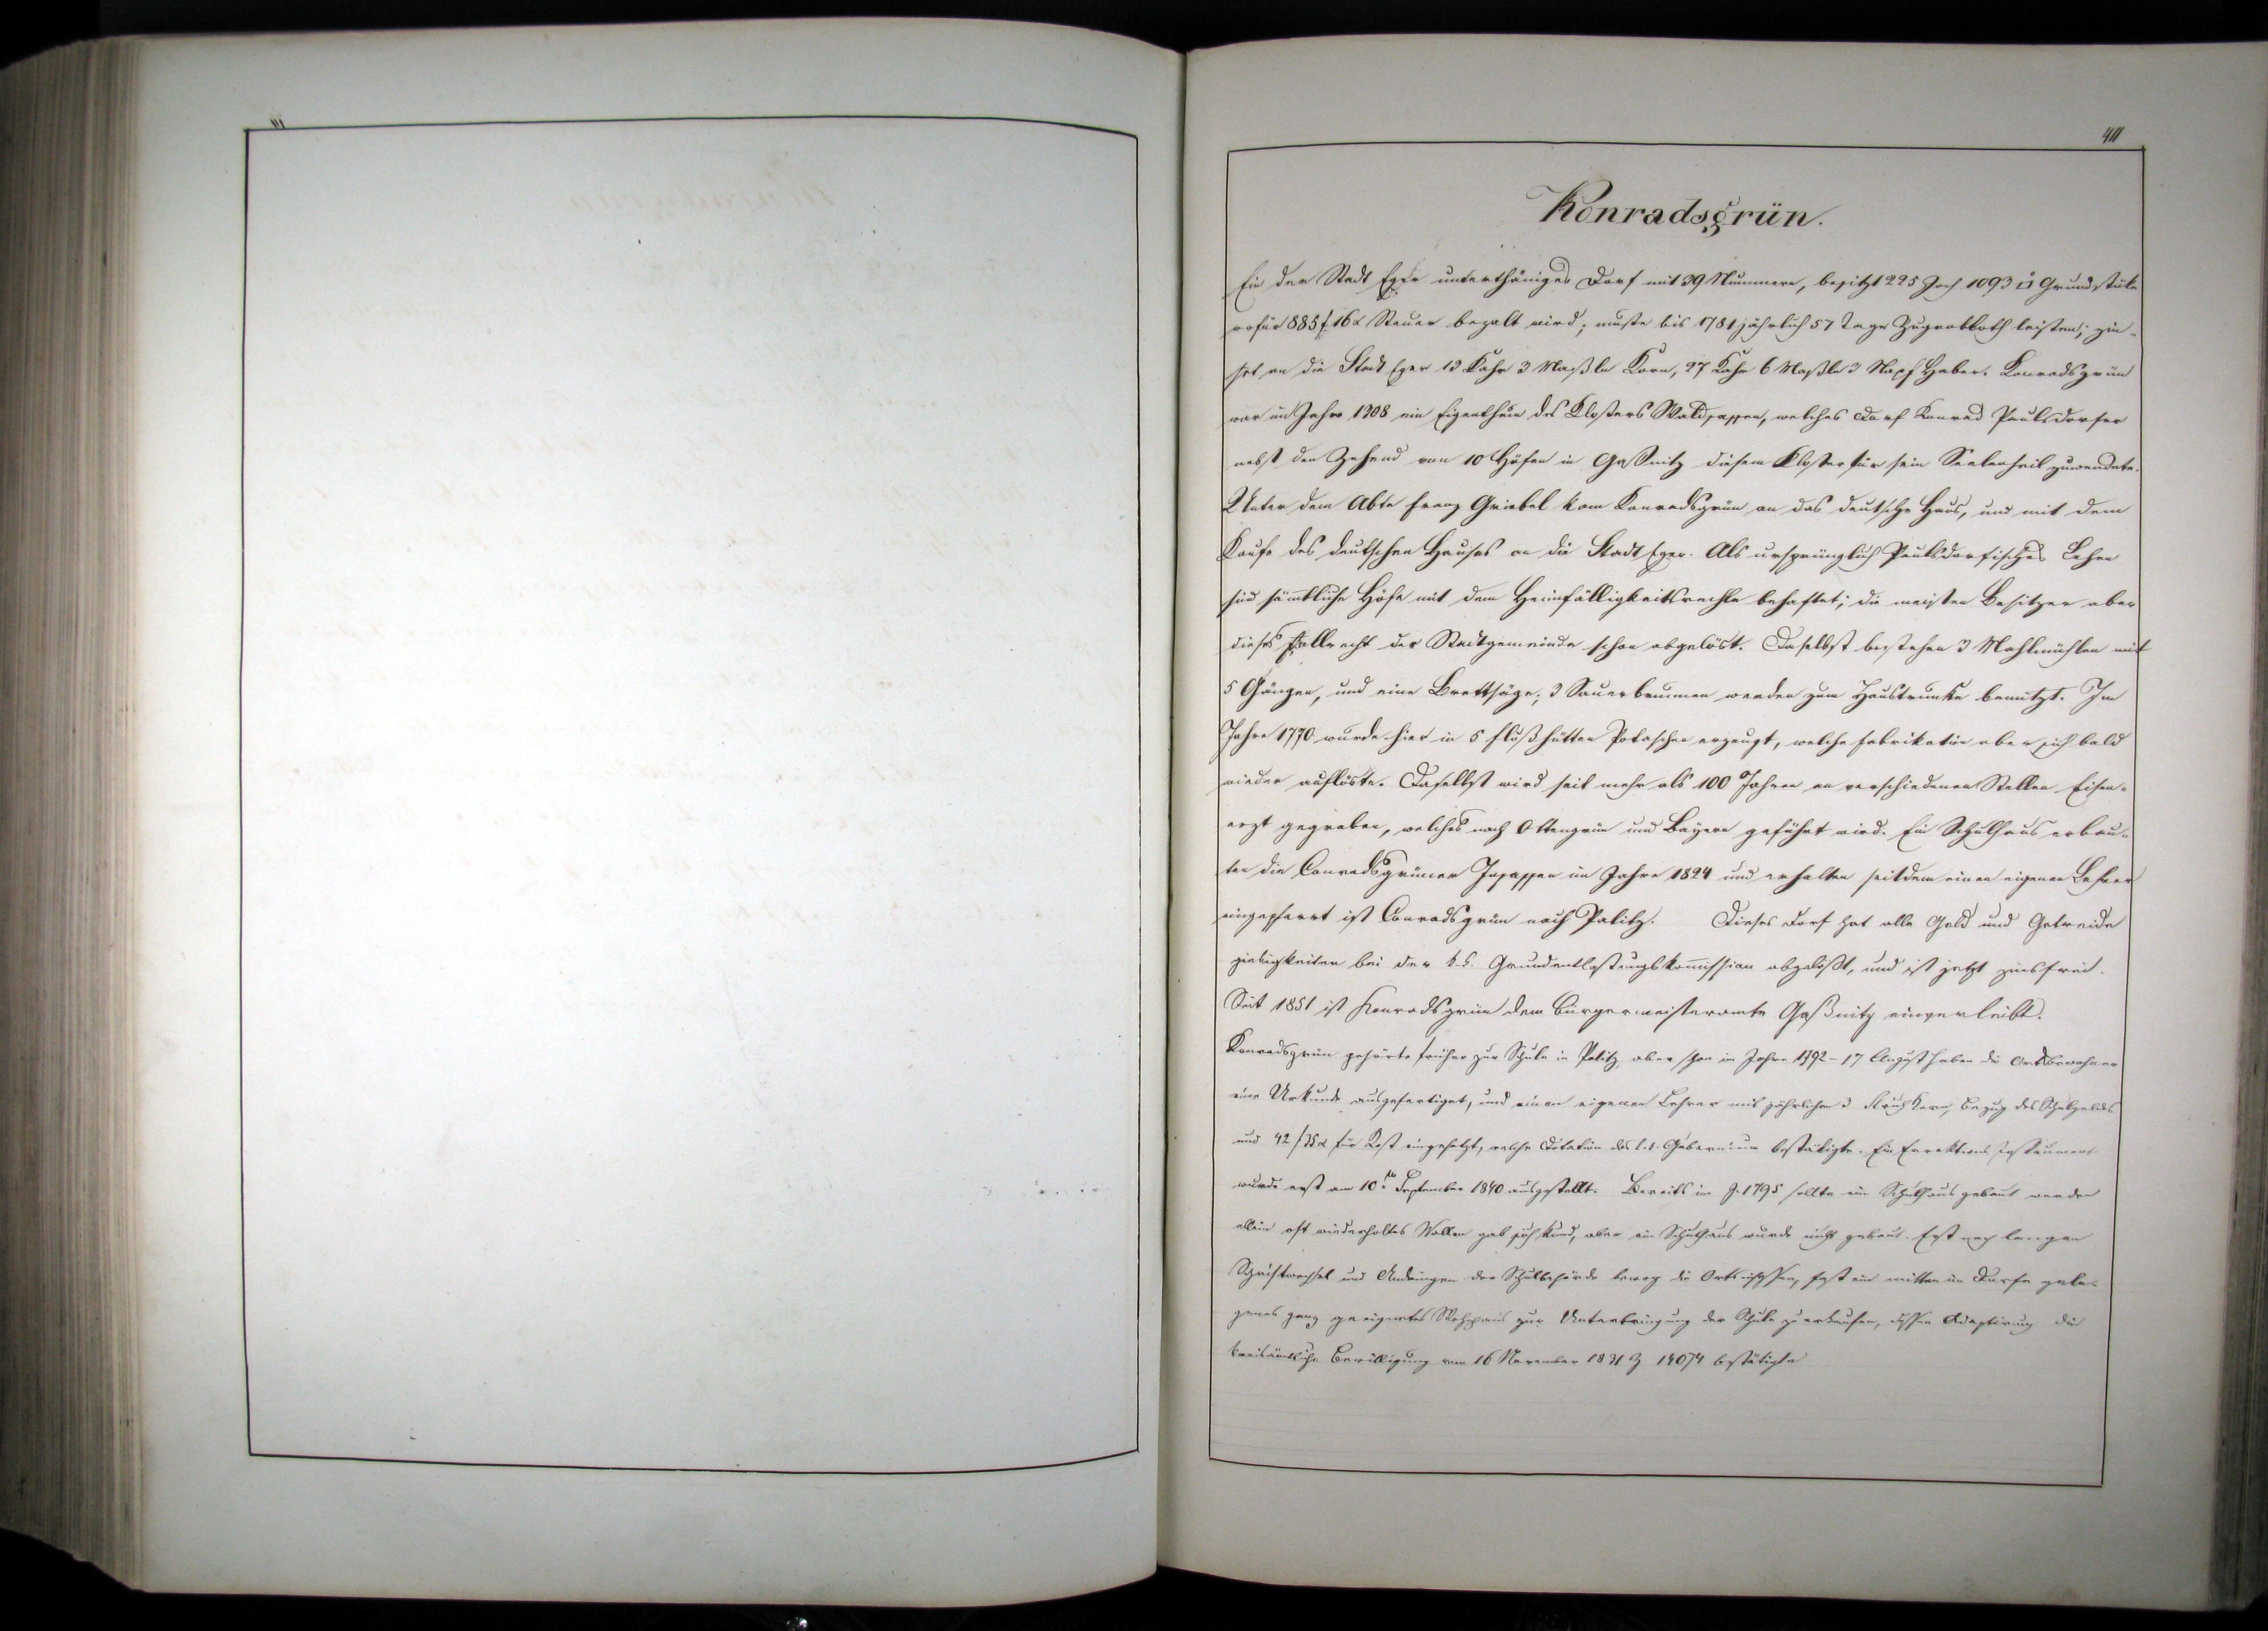 411
Konradsgrün.
Ein der Stadt Eger unterthäniges Dorf mit 39 Nummern, besitzt 225 Joch 1093 □° Grundstüke
wofür 885 f 16 x Steuer bezalt wird; mußte bis 1781 jährlich 57 Tage Zugrobboth leisten; zin-
set an die Stadt Eger 13 Kahr 3 Maßle Korn, 27 Kahr 6 Maßle 3 Napf Haber. Konradsgrün
war im Jahre 1308 ein Eigenthum des Klosters Waldsassen, welches Dorf Konrad Paulsdorfer
nebst den Zehend von 10 Höfen in Gaßnitz diesem Kloster für sein Seelenheil zuwendete.
Unter dem Abte Franz Griebel kam Konradsgrün an das deutsche Haus, und mit dem
Kaufe des deutschen Hauses an die Stadt Eger. Als ursprünglich Paulsdorfisches Lehen
sind sämtliche Höfe mit dem Heimfälligkeitsrechte behaftet; die meisten Besitzer aber
dieses Fallrecht der Stadtgemeinde schon abgelöst. Daselbst bestehen 3 Mahlmühlen mit
5 Gängen, und eine Brettsäge; 3 Sauerbrunnen werden zum Haustrunke benützt. Im
Jahre 1770 wurde hier in 5 Flußhütten Potaschen erzeugt, welche Fabrikation aber sich bald
wieder auflöste. Daselbst wird seit mehr als 100 Jahren an verschiedenen Stellen Eisen-
erzt gegraben, welches nach Ottengrün und Bayern geführt wird. Ein Schulhaus erbau-
ten die Conradsgrüner Insassen im Jahre 1824 und erhalten seitdem einen eigenen Lehrer
eingepfarrt ist Conradsgrün nach Palitz. Dieses Dorf hat alle Geld und Getreide
giebigkeiten bei der k.k. Grundentlastungskommission abgelößt, und ist jetzt zinsfrei.
Seit 1851 ist Konradsgrün dem Bürgermeisteramte Gaßnitz einverleibt.
Konradsgrün gehörte früher zur Schule in Palitz, aber schon im Jahre 1792 - 17 August haben die Ortsbewohner
eine Urkunde ausgefertiget, und einen eigenen Lehrer mit jährlichen 3 Strich Korn, Bezug des Schulgeldes
und 42 f 35 x für Kost eingesetzt, welche Dotation das k.k. Gubernium bestätigte. Ein Errektions Instrument
wurde erst am 10. September 1840 ausgestellt. Bereits im J. 1795 sollte ein Schulhaus gebaut werden
allein oft wiederholtes Wollen gab sich kund, aber ein Schulhaus wurde nicht gebaut. Erst nach langen
Schriftwechsel und Andringen der Schulbehörde bewog die Ortsinsassen, erst ein mitten im Dorfe gele-
genes ganz geeignetes Wohnhaus zur Unterbringung der Schule zu erkaufen, dessen Adaptirung die
kreisämtliche Bewilligung vom 16 November 1831 Z 14074 bestätigte